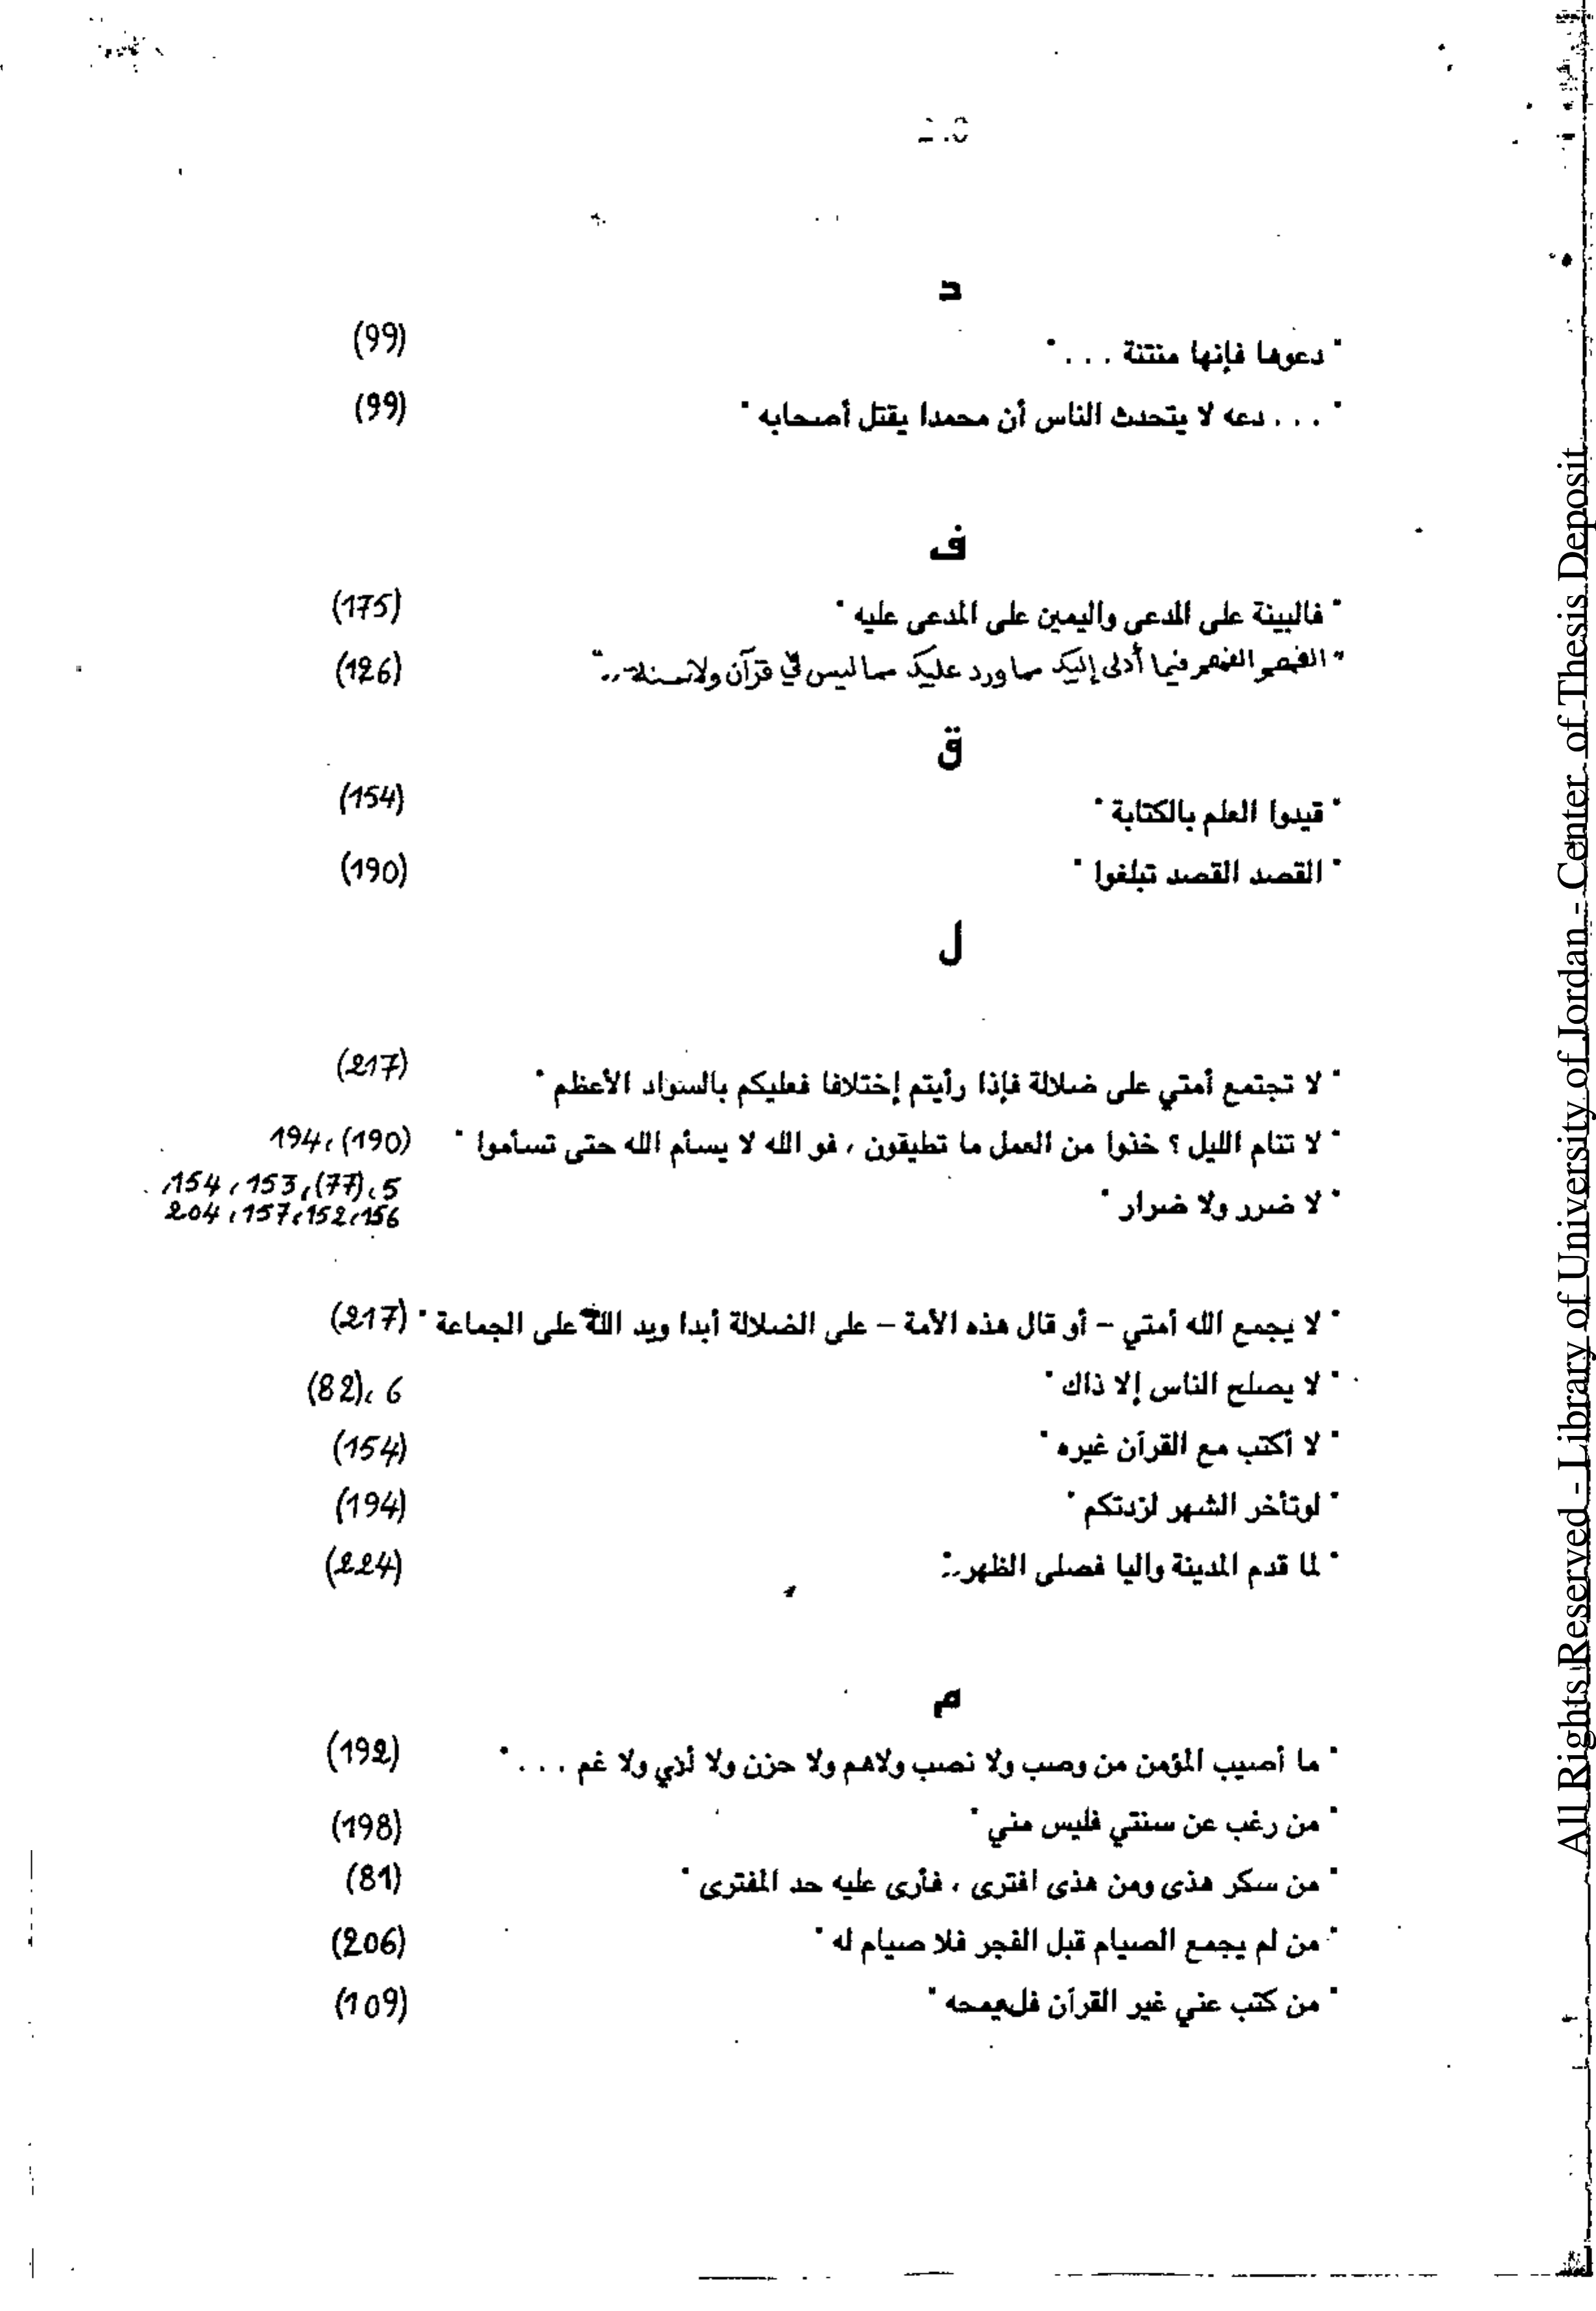 د
" دعوها فإنها منتنة . . . " (99)
" . . . دعه لا يتحدث الناس أن محمدا يقتل أصحابه " (99)
ف
" فالبينة على المدعى واليمين على المدعى عليه " (175)
" الفهم الفهم فيما أدلى إليك مما ورد عليك مما ليس في قرآن ولا سنة ... " (126)
ق
" قيدوا العلم بالكتابة " (154)
" القصد القصد تبلغوا " (190)
ل
" لا تجتمع أمتي على ضلالة فإذا رأيتم إختلافا فعليكم بالسواد الأعظم " (217)
" لا تنام الليل ؟ خذوا من العمل ما تطيقون ، فو الله لا يسأم الله حتى تسأموا " (190)، 194
" لا ضرر ولا ضرار " 5، (77)، 153، 154،
156، 152، 157، 204
" لا يجمع الله أمتي – أو قال هذه الأمة – على الضلالة أبدا ويد الله على الجماعة " (217)
" لا يصلح الناس إلا ذاك " 6، (82)
" لا أكتب مع القرآن غيره " (154)
" لوتأخر الشهر لزدتكم " (194)
" لما قدم المدينة واليا فصلى الظهر.. " (224)
م
" ما أصيب المؤمن من وصب ولا نصب ولاهم ولا حزن ولا أذي ولا غم . . . " (192)
" من رغب عن سنتي فليس مني " (198)
" من سكر هذى ومن هذى افترى ، فأرى عليه حد المفترى " (81)
" من لم يجمع الصيام قبل الفجر فلا صيام له " (206)
" من كتب عني غير القرآن فليمحه " (109)
All Rights Reserved - Library of University of Jordan - Center of Thesis Deposit